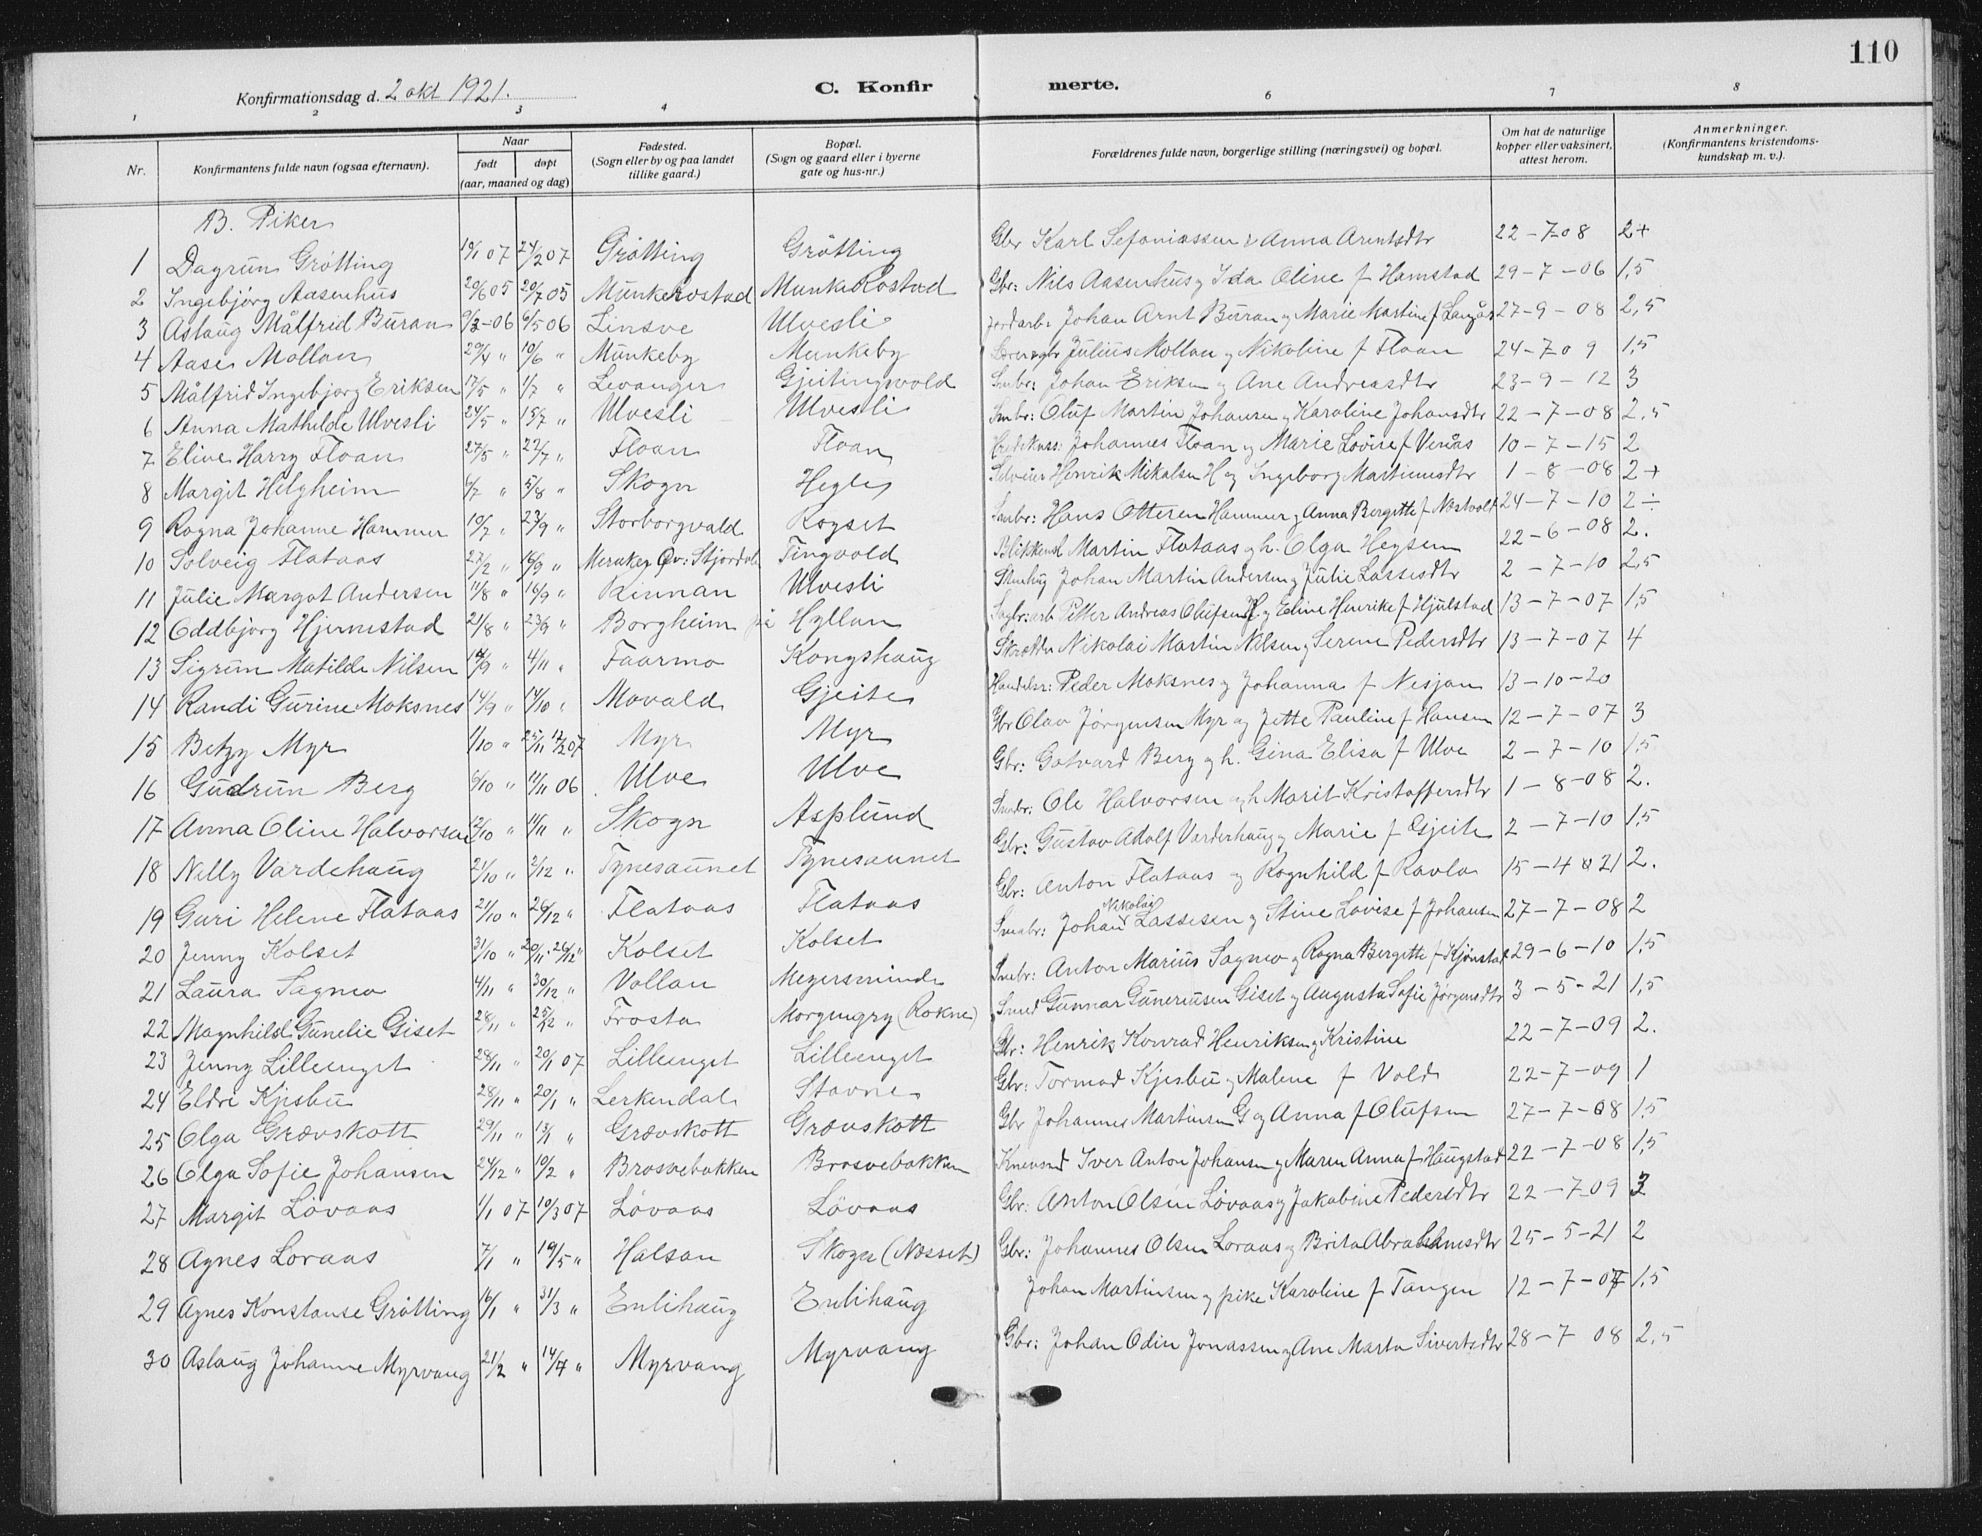 110
Konfirmationsdag d. 2 okt 1921. C. Konfir merte.
1 2 3 4 6 7 8
Nr. Konfirmantens fulde navn (ogsaa efternavn). Naar født døpt (aar, maaned og dag) Fødested. (Sogn eller by og paa landet tillike gaard.) Bopæl. (Sogn og gaard eller i byerne gate og hus-nr.) Forældrenes fulde navn, borgerlige stilling (næringsvei) og bopæl. Om hat de naturlige kopper eller vaksinert, attest herom. Anmerkninger. (Konfirmantens kristendomskundskap m. v.).
B. Piker
1 Dagrun Grötting 07 24/2 07 Grötting Grötting Gbr Karl Sefaniassen & Anna Arentsdtr 22-7-08 2+
2 Ingebjörg Aasenhus 20/6 05 20/7 05 Munkerostad Munkerostad Gbr: Nils Aasenhus g Ida Oline f Hamstad 29-7-06 1,5
3 Aslaug Målfrid Buran 06 6/5 06 Linsve Ulvesli Jordarb: Johan Arnt Buran g Marie Martine f Langås 27-9-08 2,5
4 Aase Mollan 29/4 " 10/6 " Munkeby Munkeby Julius Mollan g Nikoline f Floan 24-7 09 1,5
5 Målfrid Ingebjorg Eriksen 17/5 " 1/7 " Levanger Gjeitingsvold Smbr: Johan Eriksen g Ane Andreasdtr 23-9-12 3
6 Anna Mathilde Ulvesli 24/5 " 15/7 " Ulvesli Ulvesli Smbr: Oluf Martin Johansen g Karoline Johansdtr 22-7-08 2,5
7 Eline Harry Floan 27/5 " 22/7 " Floan Floan Johannes Floan g Marie Lovise f Venås 10-7-15 2
8 Margit Helgheim 6/7 " 5/8 " Skogn Hegle Henrik Mikalsen H g Ingeborg Martinusdtr 1-8-08 2+
9 Ragna Johanne Hammer 10/7 " 23/9 " Storborgvald Rogset Smbr: Hans Otteren Hammer g Anna Bergitte f Nestvolf 24-7-10 2÷
10 Solveig Flataas 16/9 " Meraker Öv: Stjördal Tingvold Blikkensl Martin Flataas g h. Olga Heysen 22-6-08 2.
11 Julie Margot Andersen 11/8 " 16/9 " Rinnan Ulvesli Johan Martin Andersen g Julie Lassesdtr 2-7-10 2,5
12 Oddbjorg Hjernstad 21/8 " 23/9 " Borgheim på Hyllan Sagbr:arb Petter Andreas Olufsen H. g Eline Henrike f Hjulstad 13-7-07 1,5
13 Sigrun Matilde Nilsen 14/9 " 4/11 " Faarmo Kongshaug Skredder Nikolai Martin Nilsen g Serine Pedersdtr 13-7-07 4
14 Randi Gurine Moksnes 14/9 " 14/10 " Movald Gjeite Handelsr: Peder Moksnes g Johanna f Nesjan 13-10-20
15 Betzy Myr 1/10 " 25/11 17/2 07 Myr Myr Gbr Olav Jörgensen Myr og Jette Pauline f Hansen 12-7-07 3
16 Gudrun Berg 6/10 " 11/11 06 Ulve Ulve Gbr: Gotvard Berg g h. Gina Elisa f Ulve 2-7-10 1,5
17 Anna Oline Halvorsen 12/10 " 11/11 " Skogn Asplund Smbr: Ole Halvorsen g h Marit Kristoffersdtr 1-8-08 2.
18 Nelly Vardehaug 21/10 " 2/12 " Tynesaunet Tynesaunet Gbr: Gustav Adolf Varderhaug g Marie f Gjeite 2-7-10 1,5
19 Guri Helene Flataas 21/10 " 26/12 " Flataas Flataas Gbr: Anton Flataas g Ragnhild f Ravlo 15-4 21 2.
20 Jenny Kolset 31/10 " 20/11 26/12 " Kolset Kolset Smabr: Johan Nikolai Lassesen g Stine Lovise f Johansen 27-7-08 2
21 Laura Sagmo 4/11 " 30/12 " Vollan Meyersminde Smbr: Anton Marius Sagmo g Ragna Bergitte f Kjönstad 29-6-10 1,5
22 Magnhild Gunelie Giset 28/11 " 25/12 " Frosta Morgengry (Rokne) Smed Gunnar Guneriusen Giset g Augusta Sofie Jörgensdtr 3-5-21 1,5
23 Jenny Lilleenget 28/11 " 20/1 07 Lilleenget Lilleenget Gbr: Henrik Konrad Henriksen g Kristine 22-7-09 2.
24 Eldri Kjesbu 28/11 " 20/1 " Lerkendal Stavne Gbr: Tormod Kjesbu g Malene f Vold 22-7-09 1
25 Olga Grævskott 29/11 " 13/1 " Grævskott Grævskott Gbr Johannes Martinsen G g Anna f Olufsen 27-7-08 1,5
26 Olga Sofie Johansen 24/12 " 10/2 " Brosvebakken Brosvebakken Iver Anton Johansen g Maren Anna f Haugstad 22-7-08 1,5
27 Margit Lövaas 1/1 07 10/3 07 Lövaas Lövaas Gbr: Anton Olsen Lövaas g Jakobine Pedersdtr 22-7-09 3
28 Agnes Loraas 7/1 " 19/5 " Halsan Skogn (Nosset) Gbr: Johannes Olsen Loraas g Brita Abrahamsdtr 25-5-21 2
29 Agnes Konstanse Grötting 16/1 " 31/3 " Enlihaug Enlihaug Johan Martinsen g pike Karoline f Tangen 12-7-07 1,5
30 Aslaug Johanne Myrvang 21/2 " 14/4 " Myrvang Myrvang Gbr: Johan Odin Jonassen g Ane Marta Sivertsdtr 28-7 08 2,5